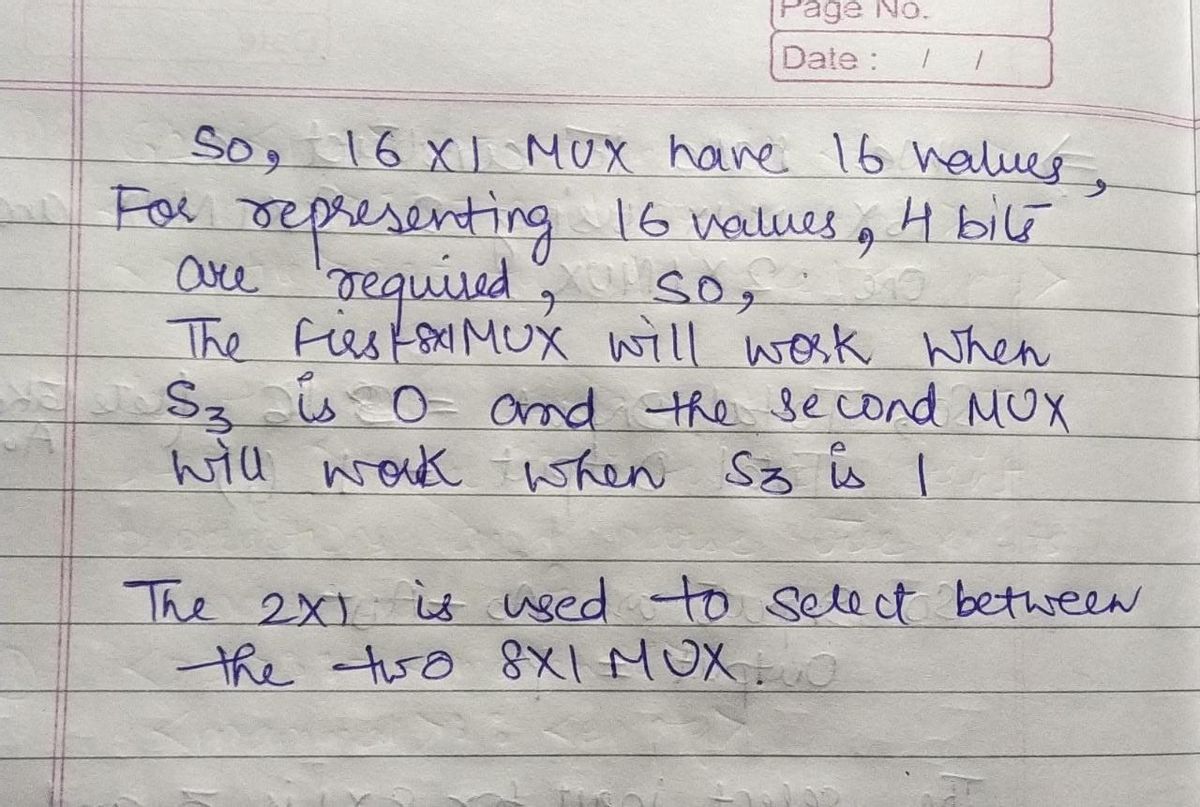 Page No.
Date : / /
So, 16 X1 MUX have 16 values,
For representing 16 values, 4 bits
are required, so,
The first 8X1 MUX will work when
S3 is 0 and the second MUX
will work when S3 is 1
The 2X1 is used to select between
the two 8X1 MUX.